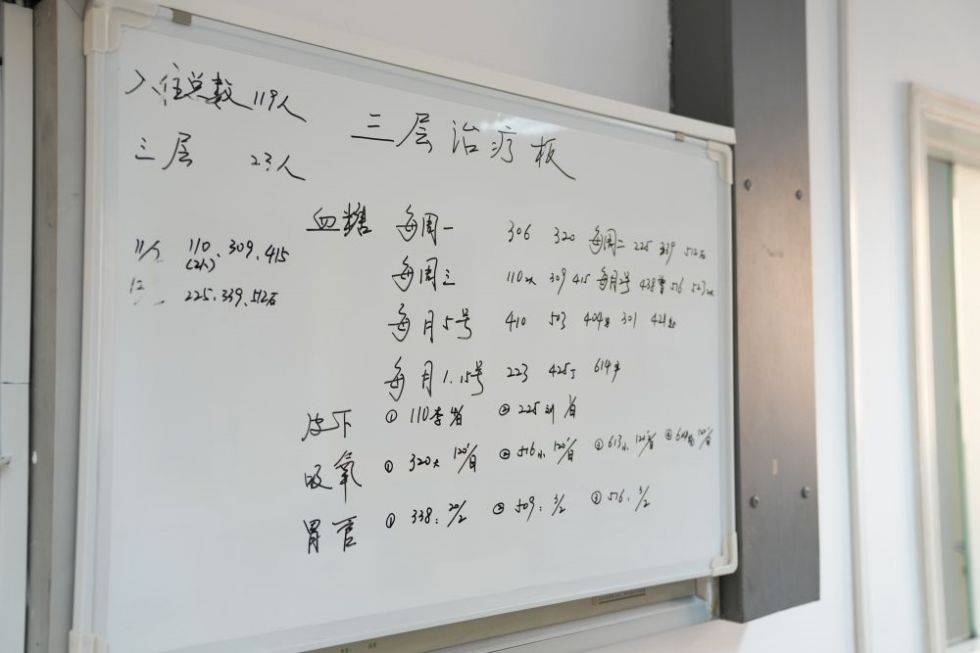 入住总数 119人
三层 23人
三层治疗板
11人 110.309.415
(2人)
12 225.339.512石
血糖 每周一 306 320 每周二 225 339 512石
每周三 110 309 415 每月2号 438曹 516 503
每月5号 410 503 404 301 421
每月1.15号 223 425丁 614
皮下 ① 110李 ② 225刘
吸氧 ① 320大 120'/ ② 516小 120'/ ③ 613小 120'/ ④
胃管 ① 338: 20/2 ② 509: 3/2 ③ 516. 3/2